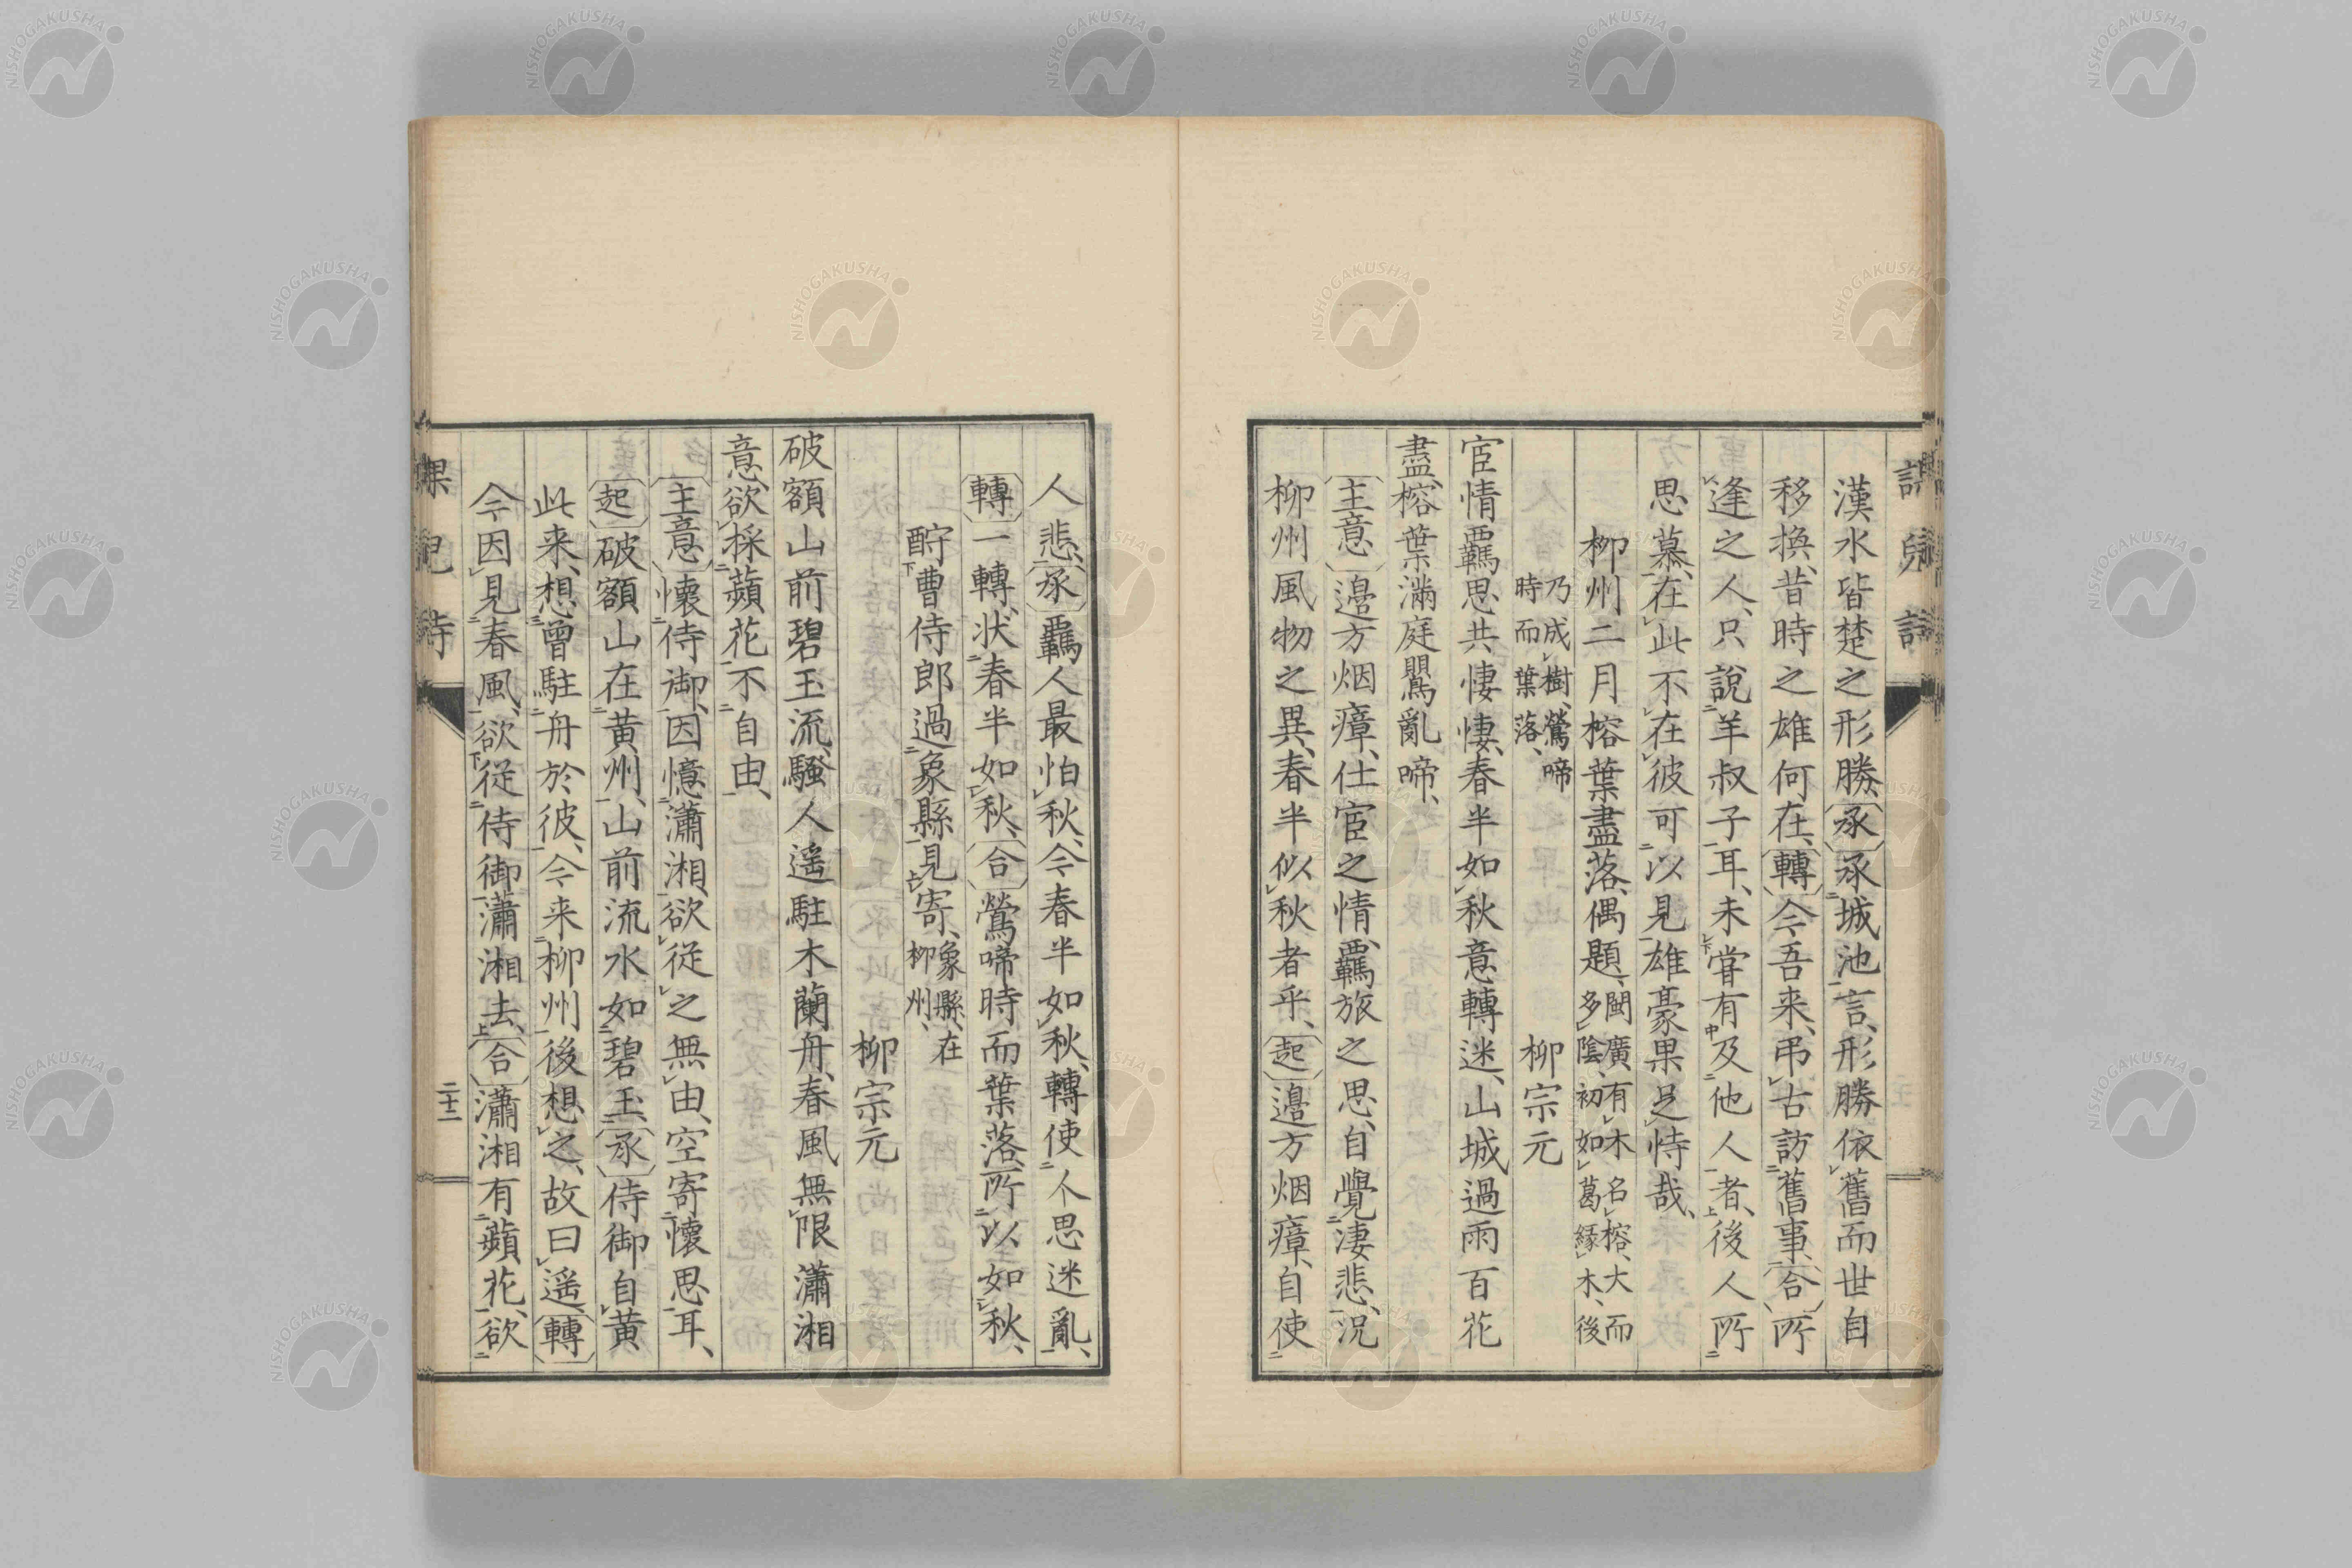 漢水皆楚之形勝、承承城池言、形勝依舊而世自
移換、昔時之雄何在、轉今吾来、弔古訪舊事、合所
逢之人、只說羊叔子耳、未嘗有及他人者、後人所
思慕、在此不在彼可以見雄豪果足恃哉、
柳州二月榕葉盡落、偶題、閩廣有木名榕、大而
多陰、初如葛緣木、後
乃成樹、鶯啼
時而葉落、
柳宗元
宦情羈思共悽悽、春半如秋意轉迷、山城過雨百花
盡、榕葉滿庭鶯亂啼、
主意邊方烟瘴、仕宦之情、羈旅之思、自覺淒悲、況
柳州風物之異、春半似秋者乎、起邊方烟瘴、自使
人悲、承羈人最怕秋、今春半如秋、轉使人思迷亂、
轉一轉状春半如秋、合鶯啼時而葉落、所以如秋、
酧曹侍郎過象縣見寄、象縣、在
柳州、
柳宗元
破額山前碧玉流、騷人遥駐木蘭舟、春風無限瀟湘
意、欲採蘋花不自由、
主意懷侍御、因憶瀟湘、欲從之無由、空寄懷思耳、
起破額山在黃州、山前流水如碧玉、承侍御自黃
此来、想曾駐舟於彼、今来柳州後想之、故曰遥、轉
今因見春風、欲從侍御瀟湘去、合瀟湘有蘋花、欲
二十二